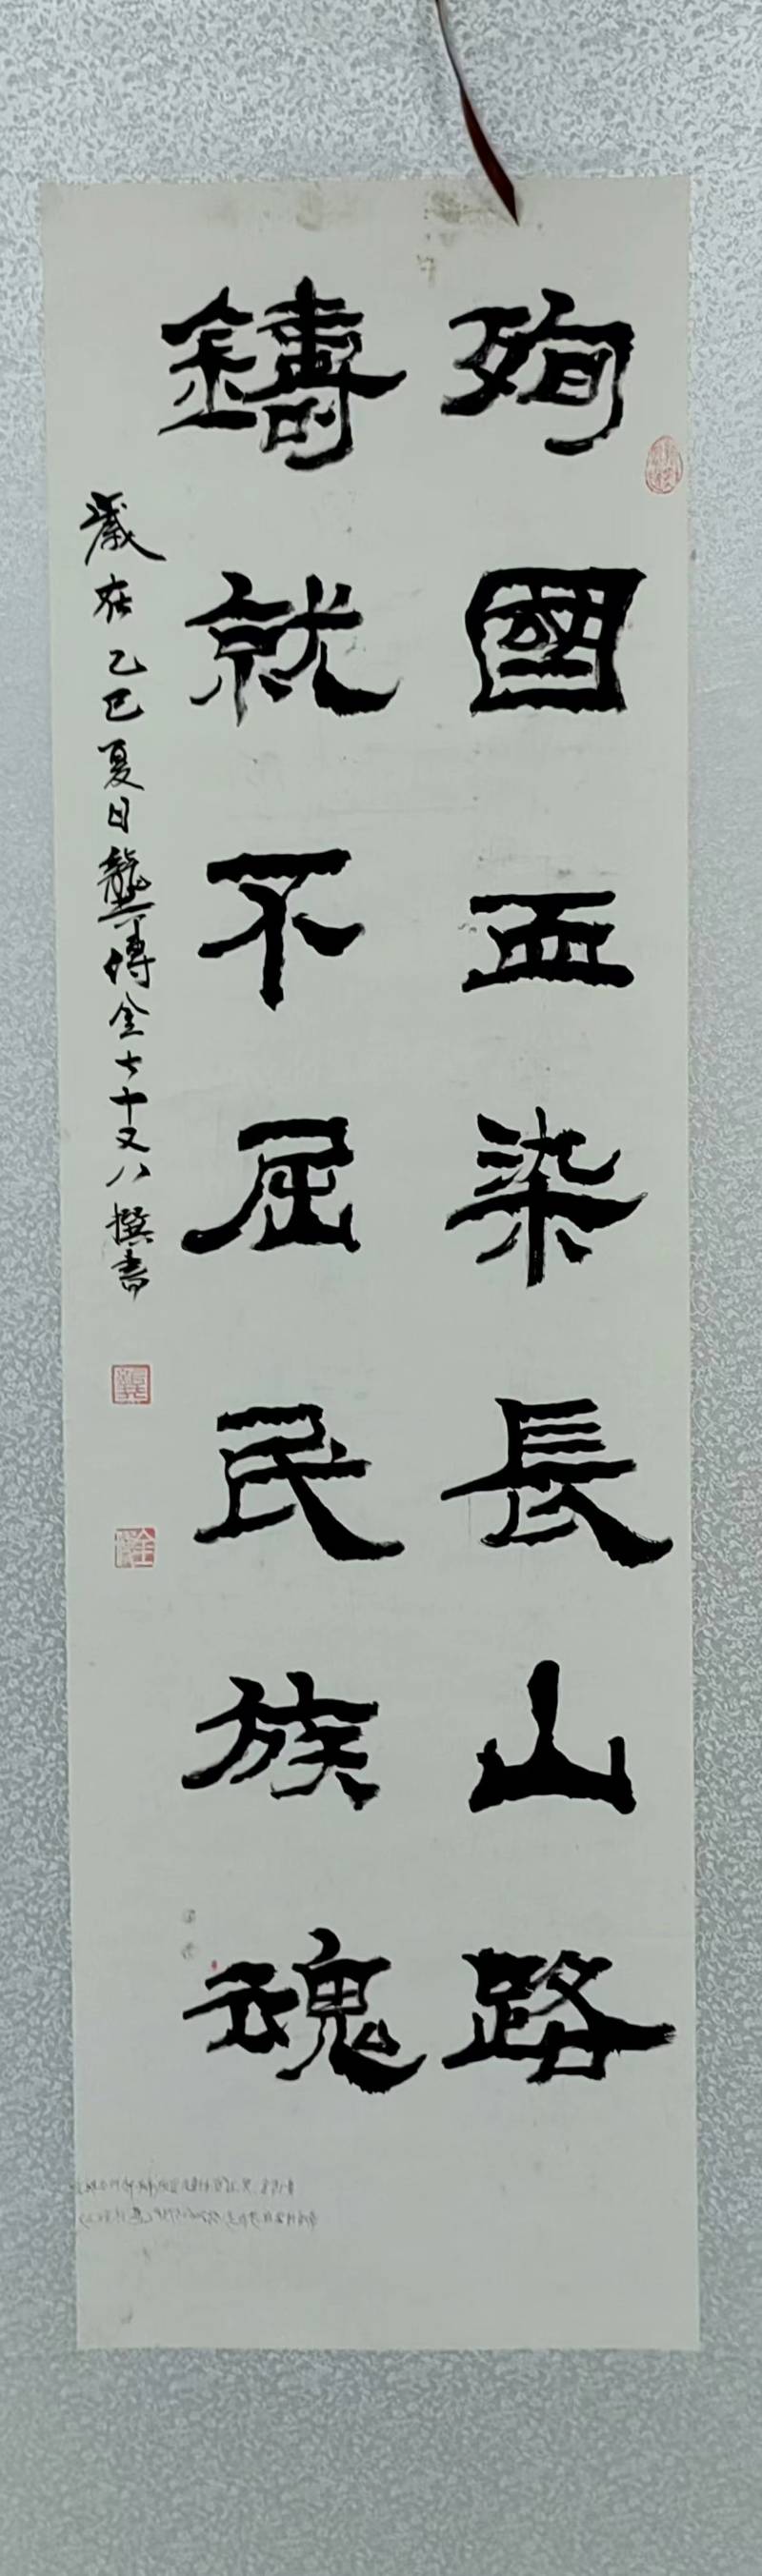 殉國血染長山路
鑄就不屈民族魂
歲在乙巳夏日龔傳金七十又八撰書